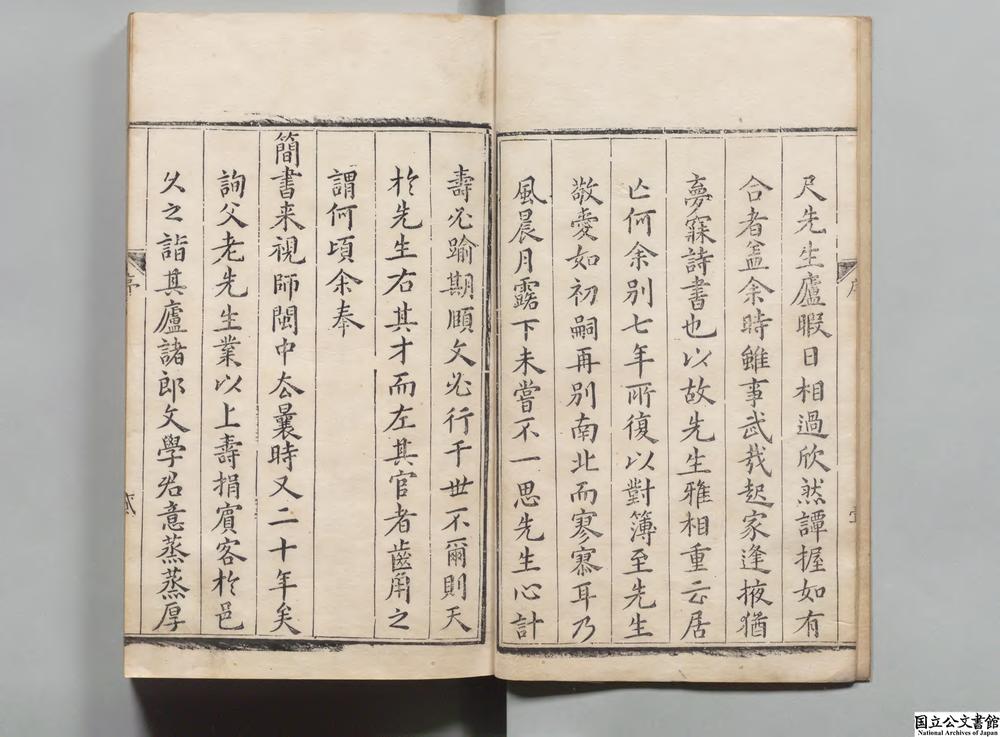 尺先生廬暇日相過欣然譚握如有
合者盖余時雖事武哉起家逢掖猶
夢寐詩書也以故先生雅相重云居
亡何余別七年所復以對簿至先生
敬愛如初嗣再別南北而寥寥耳乃
風晨月露下未嘗不一思先生心計
壹
壽必踰期頤文必行千世不爾則天
於先生右其才而左其官者齒角之
謂何頃余奉
簡書来視師閩中去曩時又二十年矣
詢父老先生業以上壽捐賓客於邑
久之詣其廬諸郎文學君意蒸蒸厚
序
貳
国立公文書館
National Archives of Japan